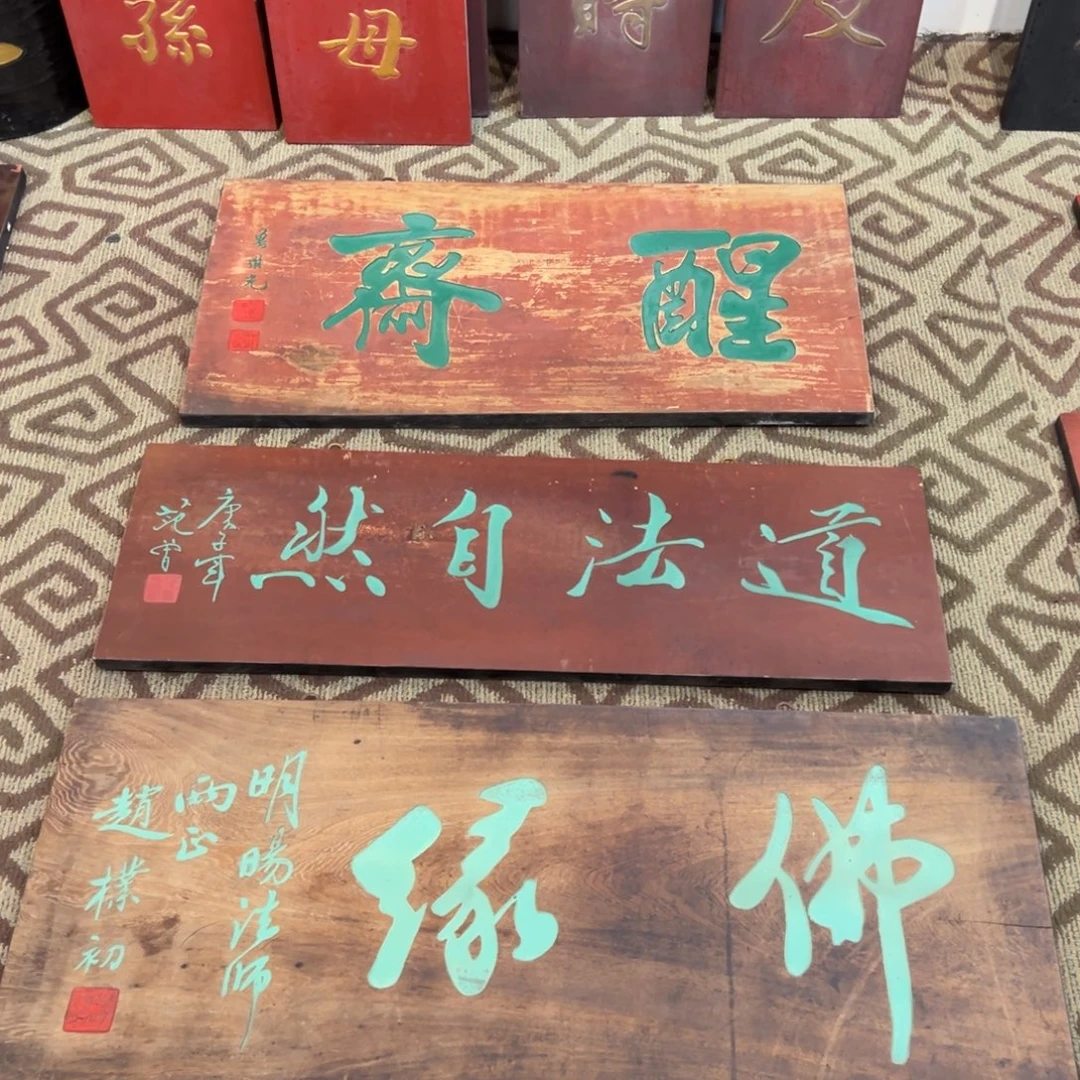 孫
母
時
醒齋
道法自然
庚子年
范曾
佛緣
明暘法師
兩正
趙樸初